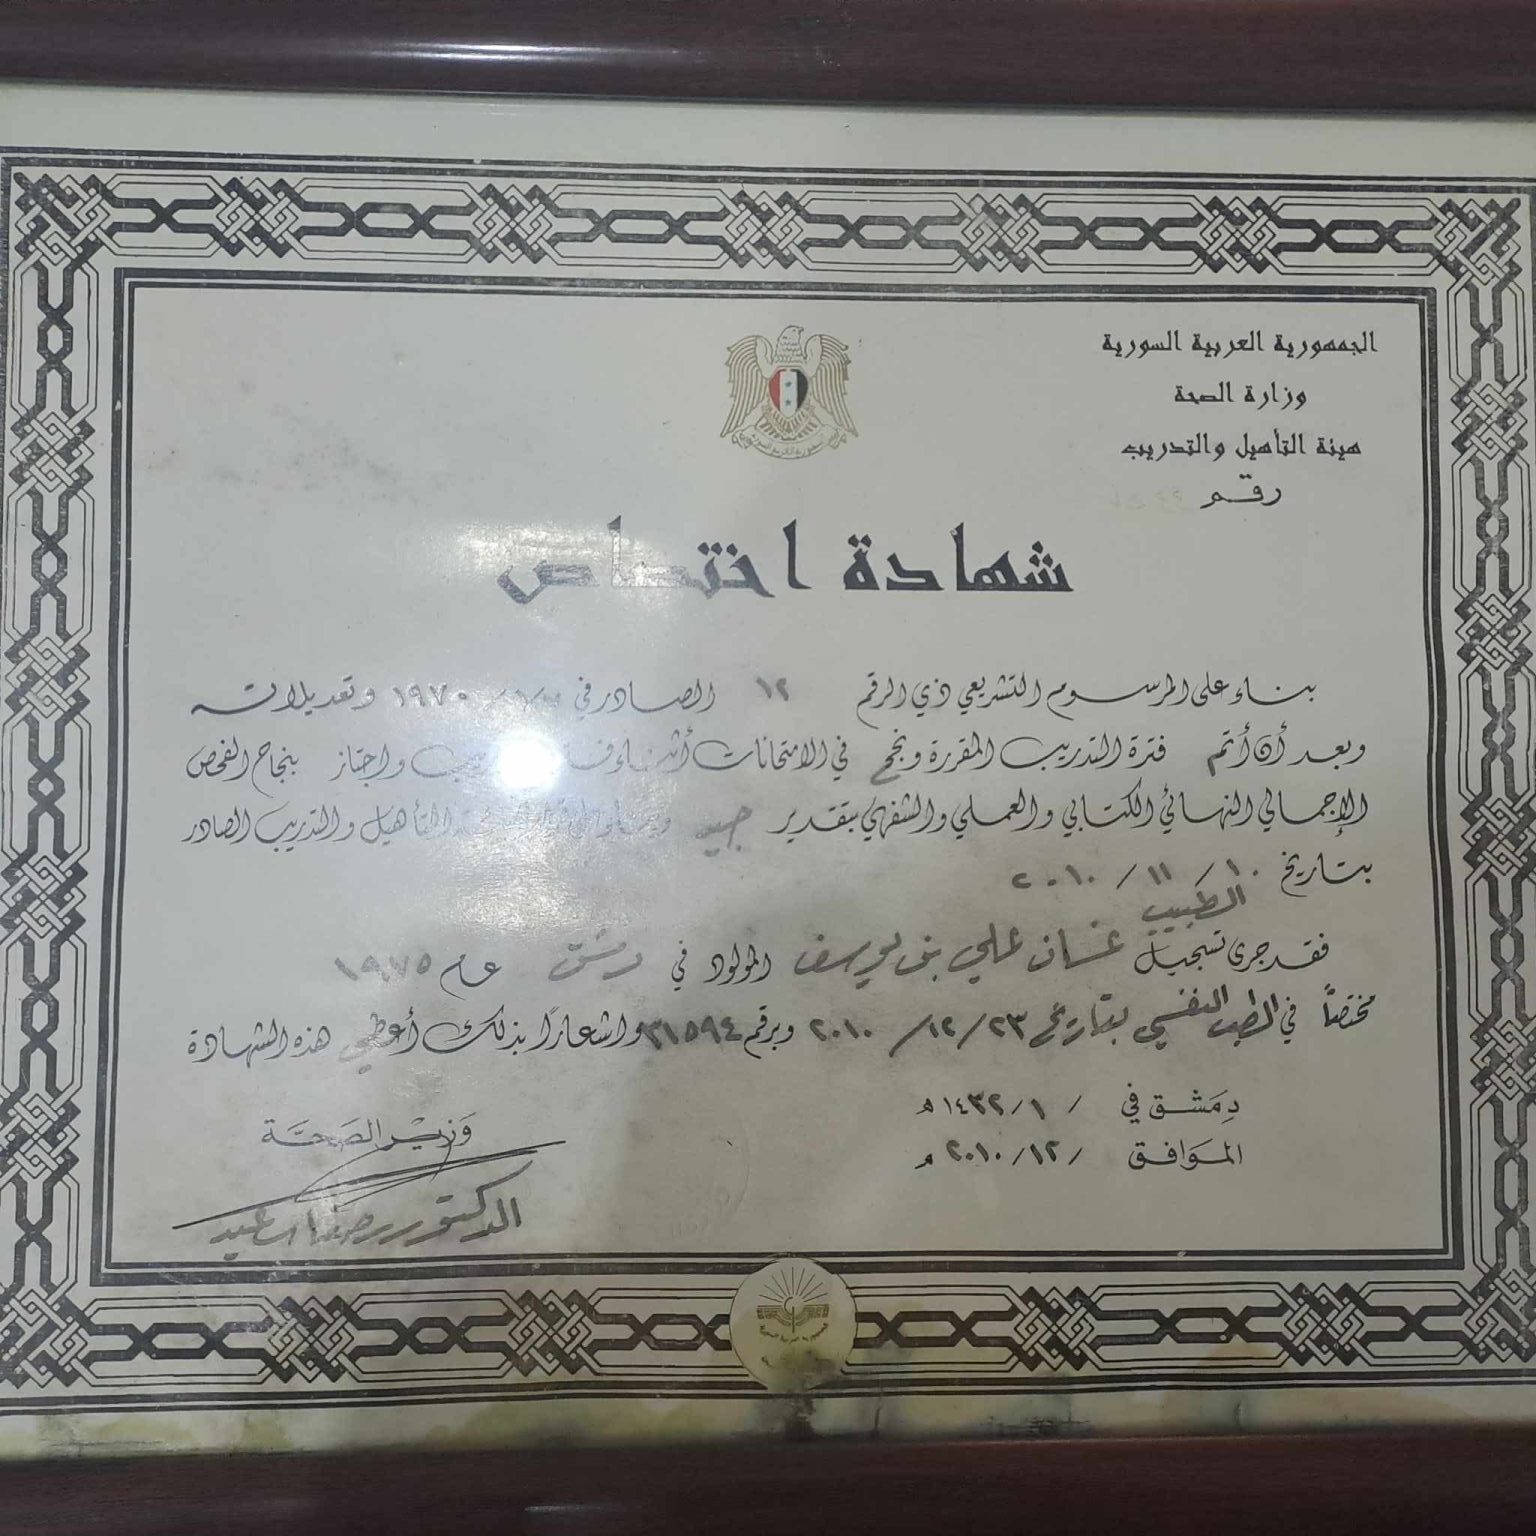 الجمهورية العربية السورية
وزارة الصحة
هيئة التأهيل والتدريب
رقم
شهادة اختصاص
بناء على المرسوم التشريعي ذي الرقم ١٢ الصادر في ١٩٧٠ وتعديلاته
وبعد أن أتم فترة التدريب المقررة ونجح في الامتحانات أثناء واجتاز بنجاح الفحص
الإجمالي النهائي الكتابي والعملي والشفهي بتقدير جيد التأهيل والتدريب الصادر
بتاريخ ١٠/١١/٢٠١٠
الطبيب
فقد جرى تسجيل غسان علي بن يوسف المولود في دمشق عام ١٩٧٥
مختصاً في الطب النفسي بتاريخ ٢٣/١٢/٢٠١٠ وبرقم ٢١٥٩٤ واشعاراً بذلك أعطي هذه الشهادة
دمشق في / ١/١٤٣٢ هـ
الموافق / ١٢/٢٠١٠ م
وزير الصحة
الدكتور رضا سعيد